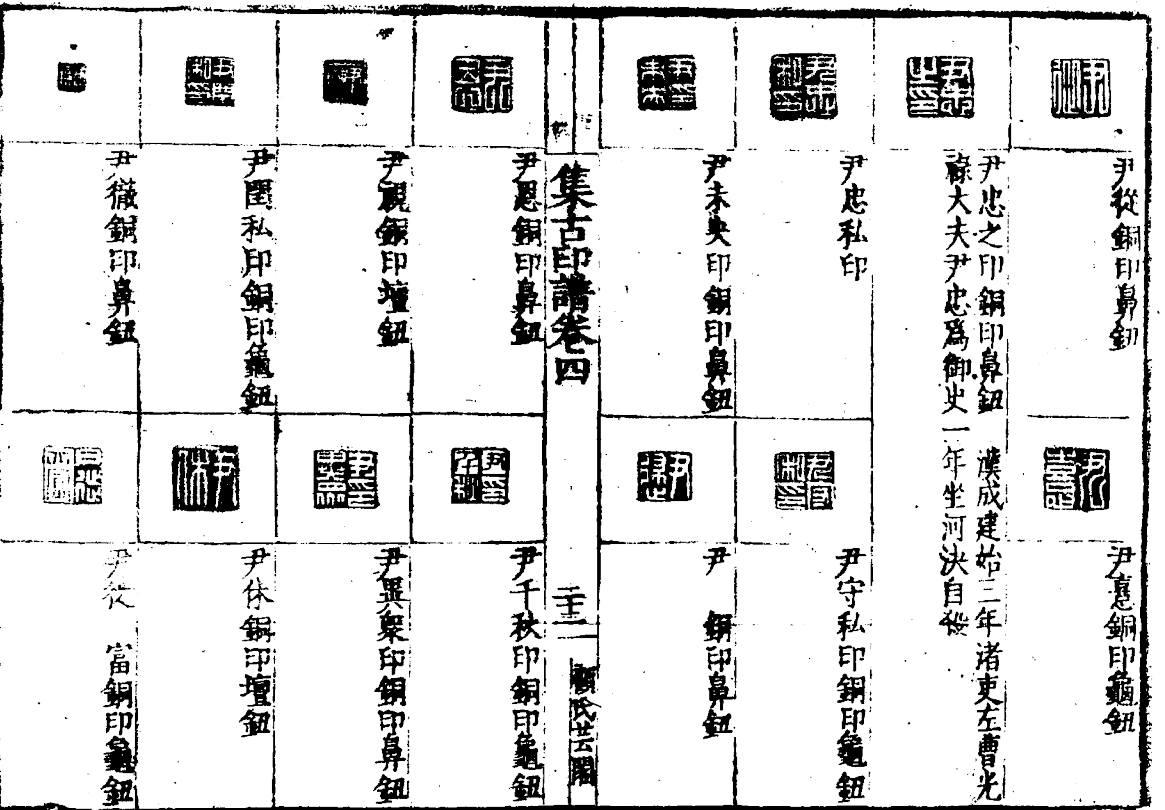 尹從銅印鼻鈕
尹憙銅印龜鈕
尹忠之印銅印鼻鈕 漢成建始三年渚吏左曹光
祿大夫尹忠爲御史一年坐河決自殺
尹忠私印
尹守私印銅印龜鈕
尹未央印銅印鼻鈕
尹 銅印鼻鈕
集古印譜卷四
二十三
顧氏芸閣
尹恩銅印鼻鈕
尹千秋印銅印龜鈕
尹 銅印壇鈕
尹異衆印銅印鼻鈕
尹閏私印銅印龜鈕
尹休銅印壇鈕
尹徹銅印鼻鈕
尹從 富銅印龜鈕